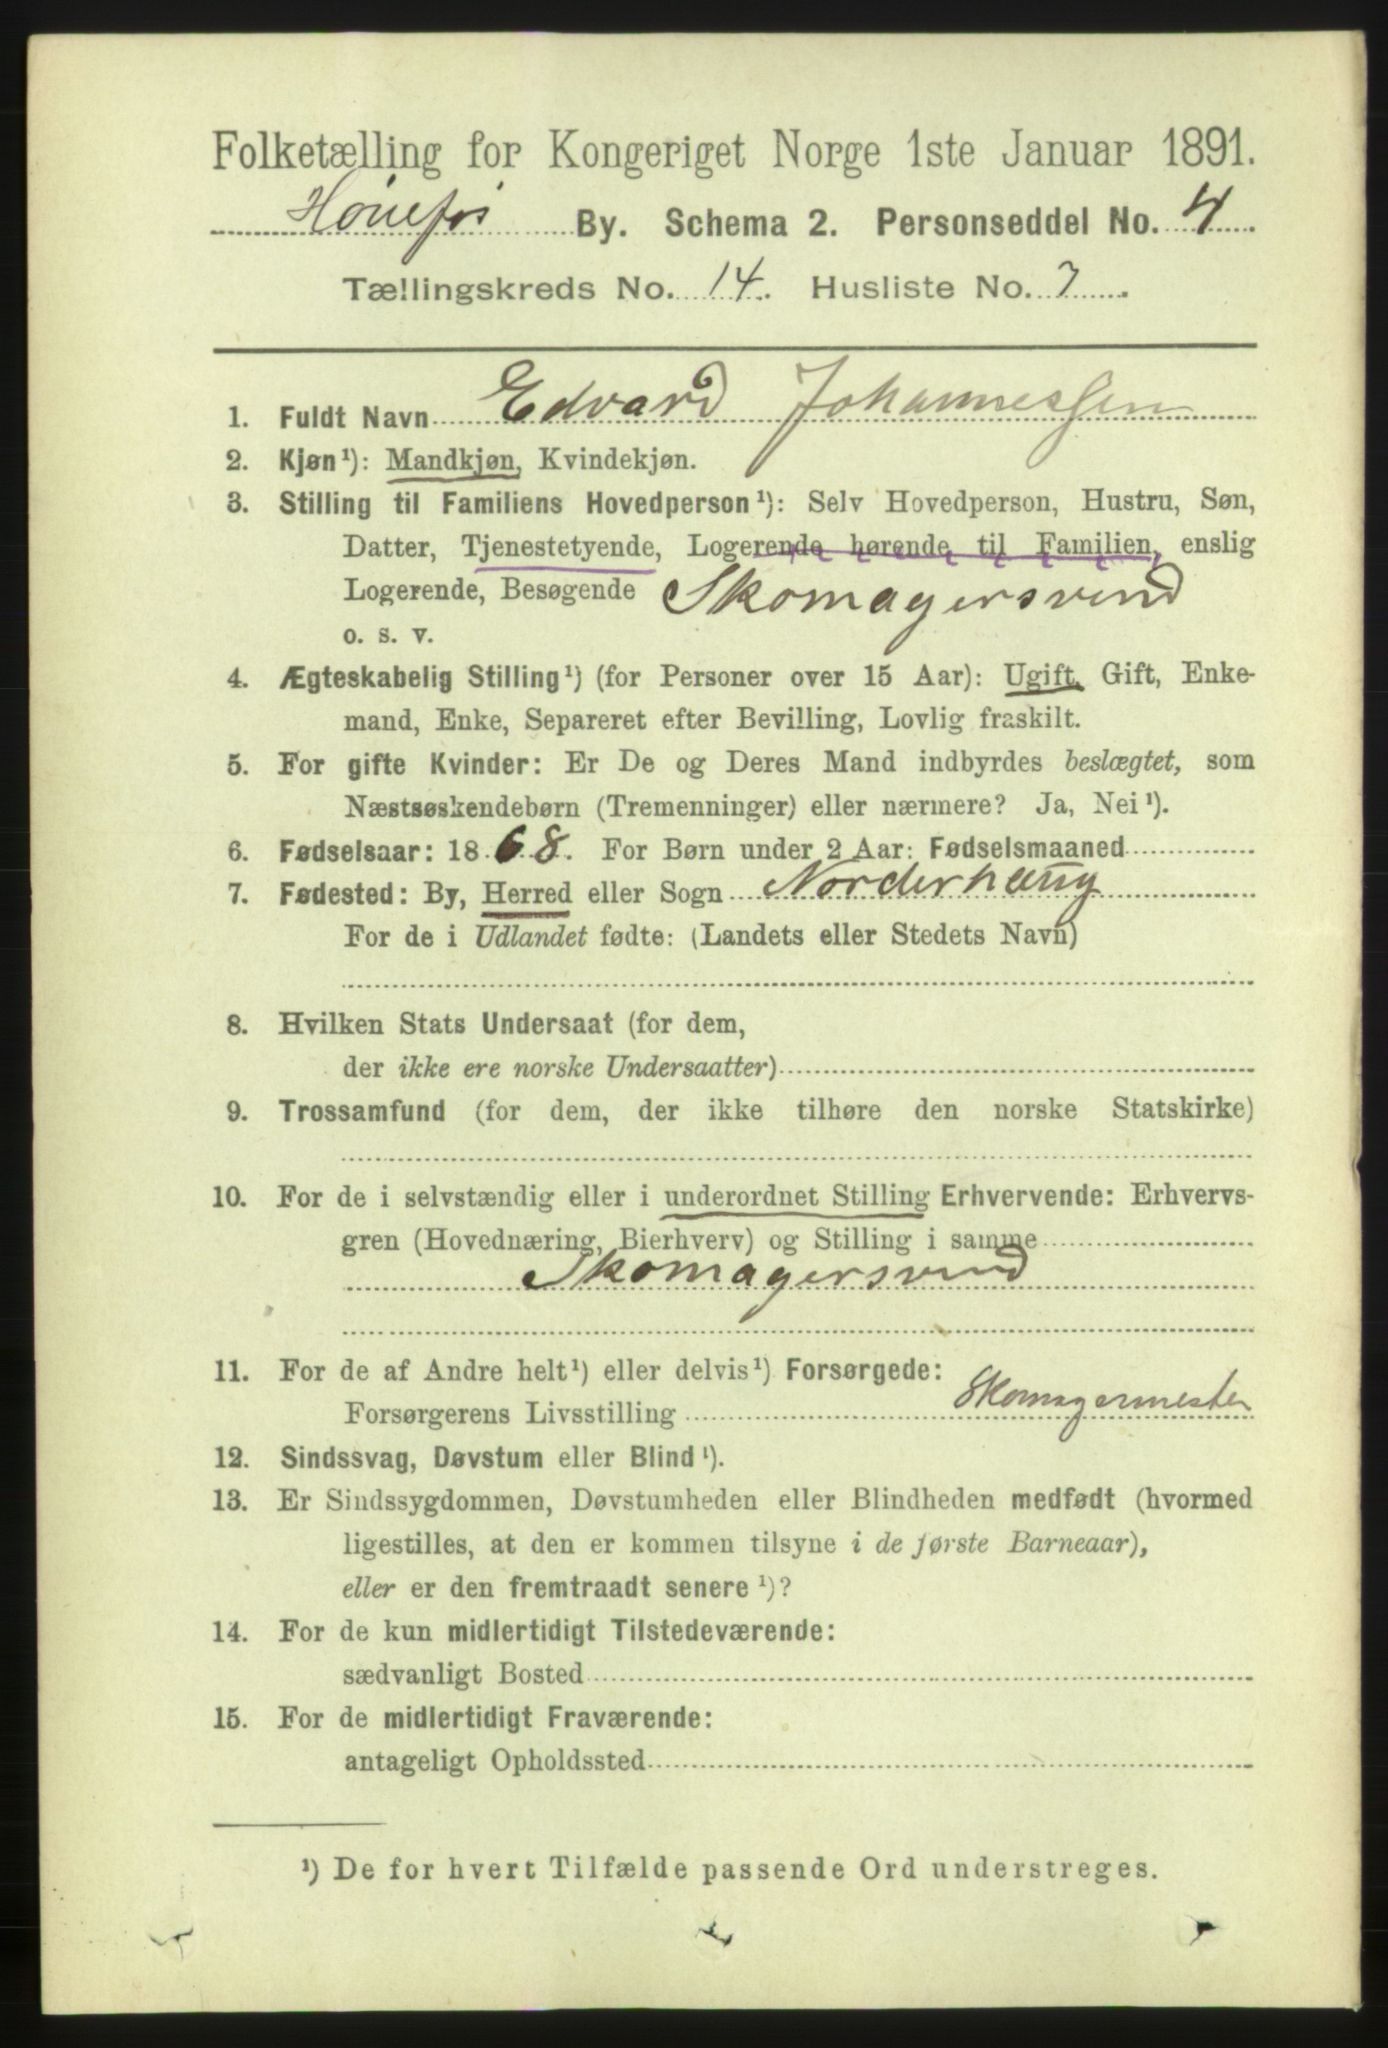 Folketælling for Kongeriget Norge 1ste Januar 1891.
Hønefos By. Schema 2. Personseddel No. 4
Tællingskreds No. 14. Husliste No. 7.
1. Fuldt Navn Edvard Johannessen
2. Kjøn¹): Mandkjøn, Kvindekjøn.
3. Stilling til Familiens Hovedperson¹): Selv Hovedperson, Hustru, Søn,
Datter, Tjenestetyende, Logerende hørende til Familien, enslig
Logerende, Besøgende Skomagersvend
o. s. v.
4. Ægteskabelig Stilling¹) (for Personer over 15 Aar): Ugift, Gift, Enke-
mand, Enke, Separeret efter Bevilling, Lovlig fraskilt.
5. For gifte Kvinder: Er De og Deres Mand indbyrdes beslægtet, som
Næstsøskendebørn (Tremenninger) eller nærmere? Ja, Nei¹).
6. Fødselsaar: 1868. For Børn under 2 Aar: Fødselsmaaned
7. Fødested: By, Herred eller Sogn Norderhaug
For de i Udlandet fødte: (Landets eller Stedets Navn)
8. Hvilken Stats Undersaat (for dem,
der ikke ere norske Undersaatter)
9. Trossamfund (for dem, der ikke tilhøre den norske Statskirke)
10. For de i selvstændig eller i underordnet Stilling Erhvervende: Erhvervs-
gren (Hovednæring, Bierhverv) og Stilling i samme
Skomagersvend
11. For de af Andre helt¹) eller delvis¹) Forsørgede:
Forsørgerens Livsstilling Skomagermester
12. Sindssvag, Døvstum eller Blind¹).
13. Er Sindssygdommen, Døvstumheden eller Blindheden medfødt (hvormed
ligestilles, at den er kommen tilsyne i de første Barneaar),
eller er den fremtraadt senere¹)?
14. For de kun midlertidigt Tilstedeværende:
sædvanligt Bosted
15. For de midlertidigt Fraværende:
antageligt Opholdssted
¹) De for hvert Tilfælde passende Ord understreges.